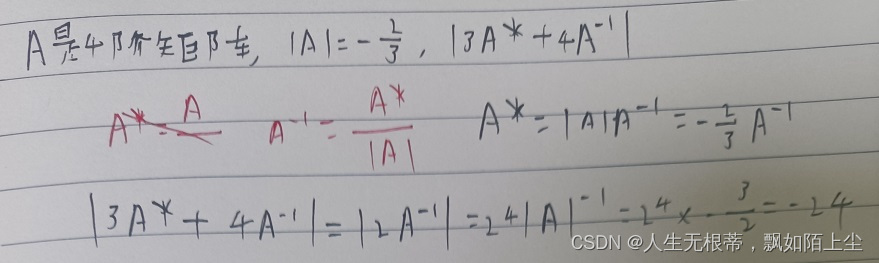 A是4阶矩阵, |A|=-2/3, |3A*+4A⁻¹|
A*=A/ A⁻¹=A*/|A| A*=|A|A⁻¹=-2/3 A⁻¹
|3A*+4A⁻¹|=|2A⁻¹|=2⁴|A|⁻¹=2⁴×-3/2=-24
CSDN @人生无根蒂，飘如陌上尘